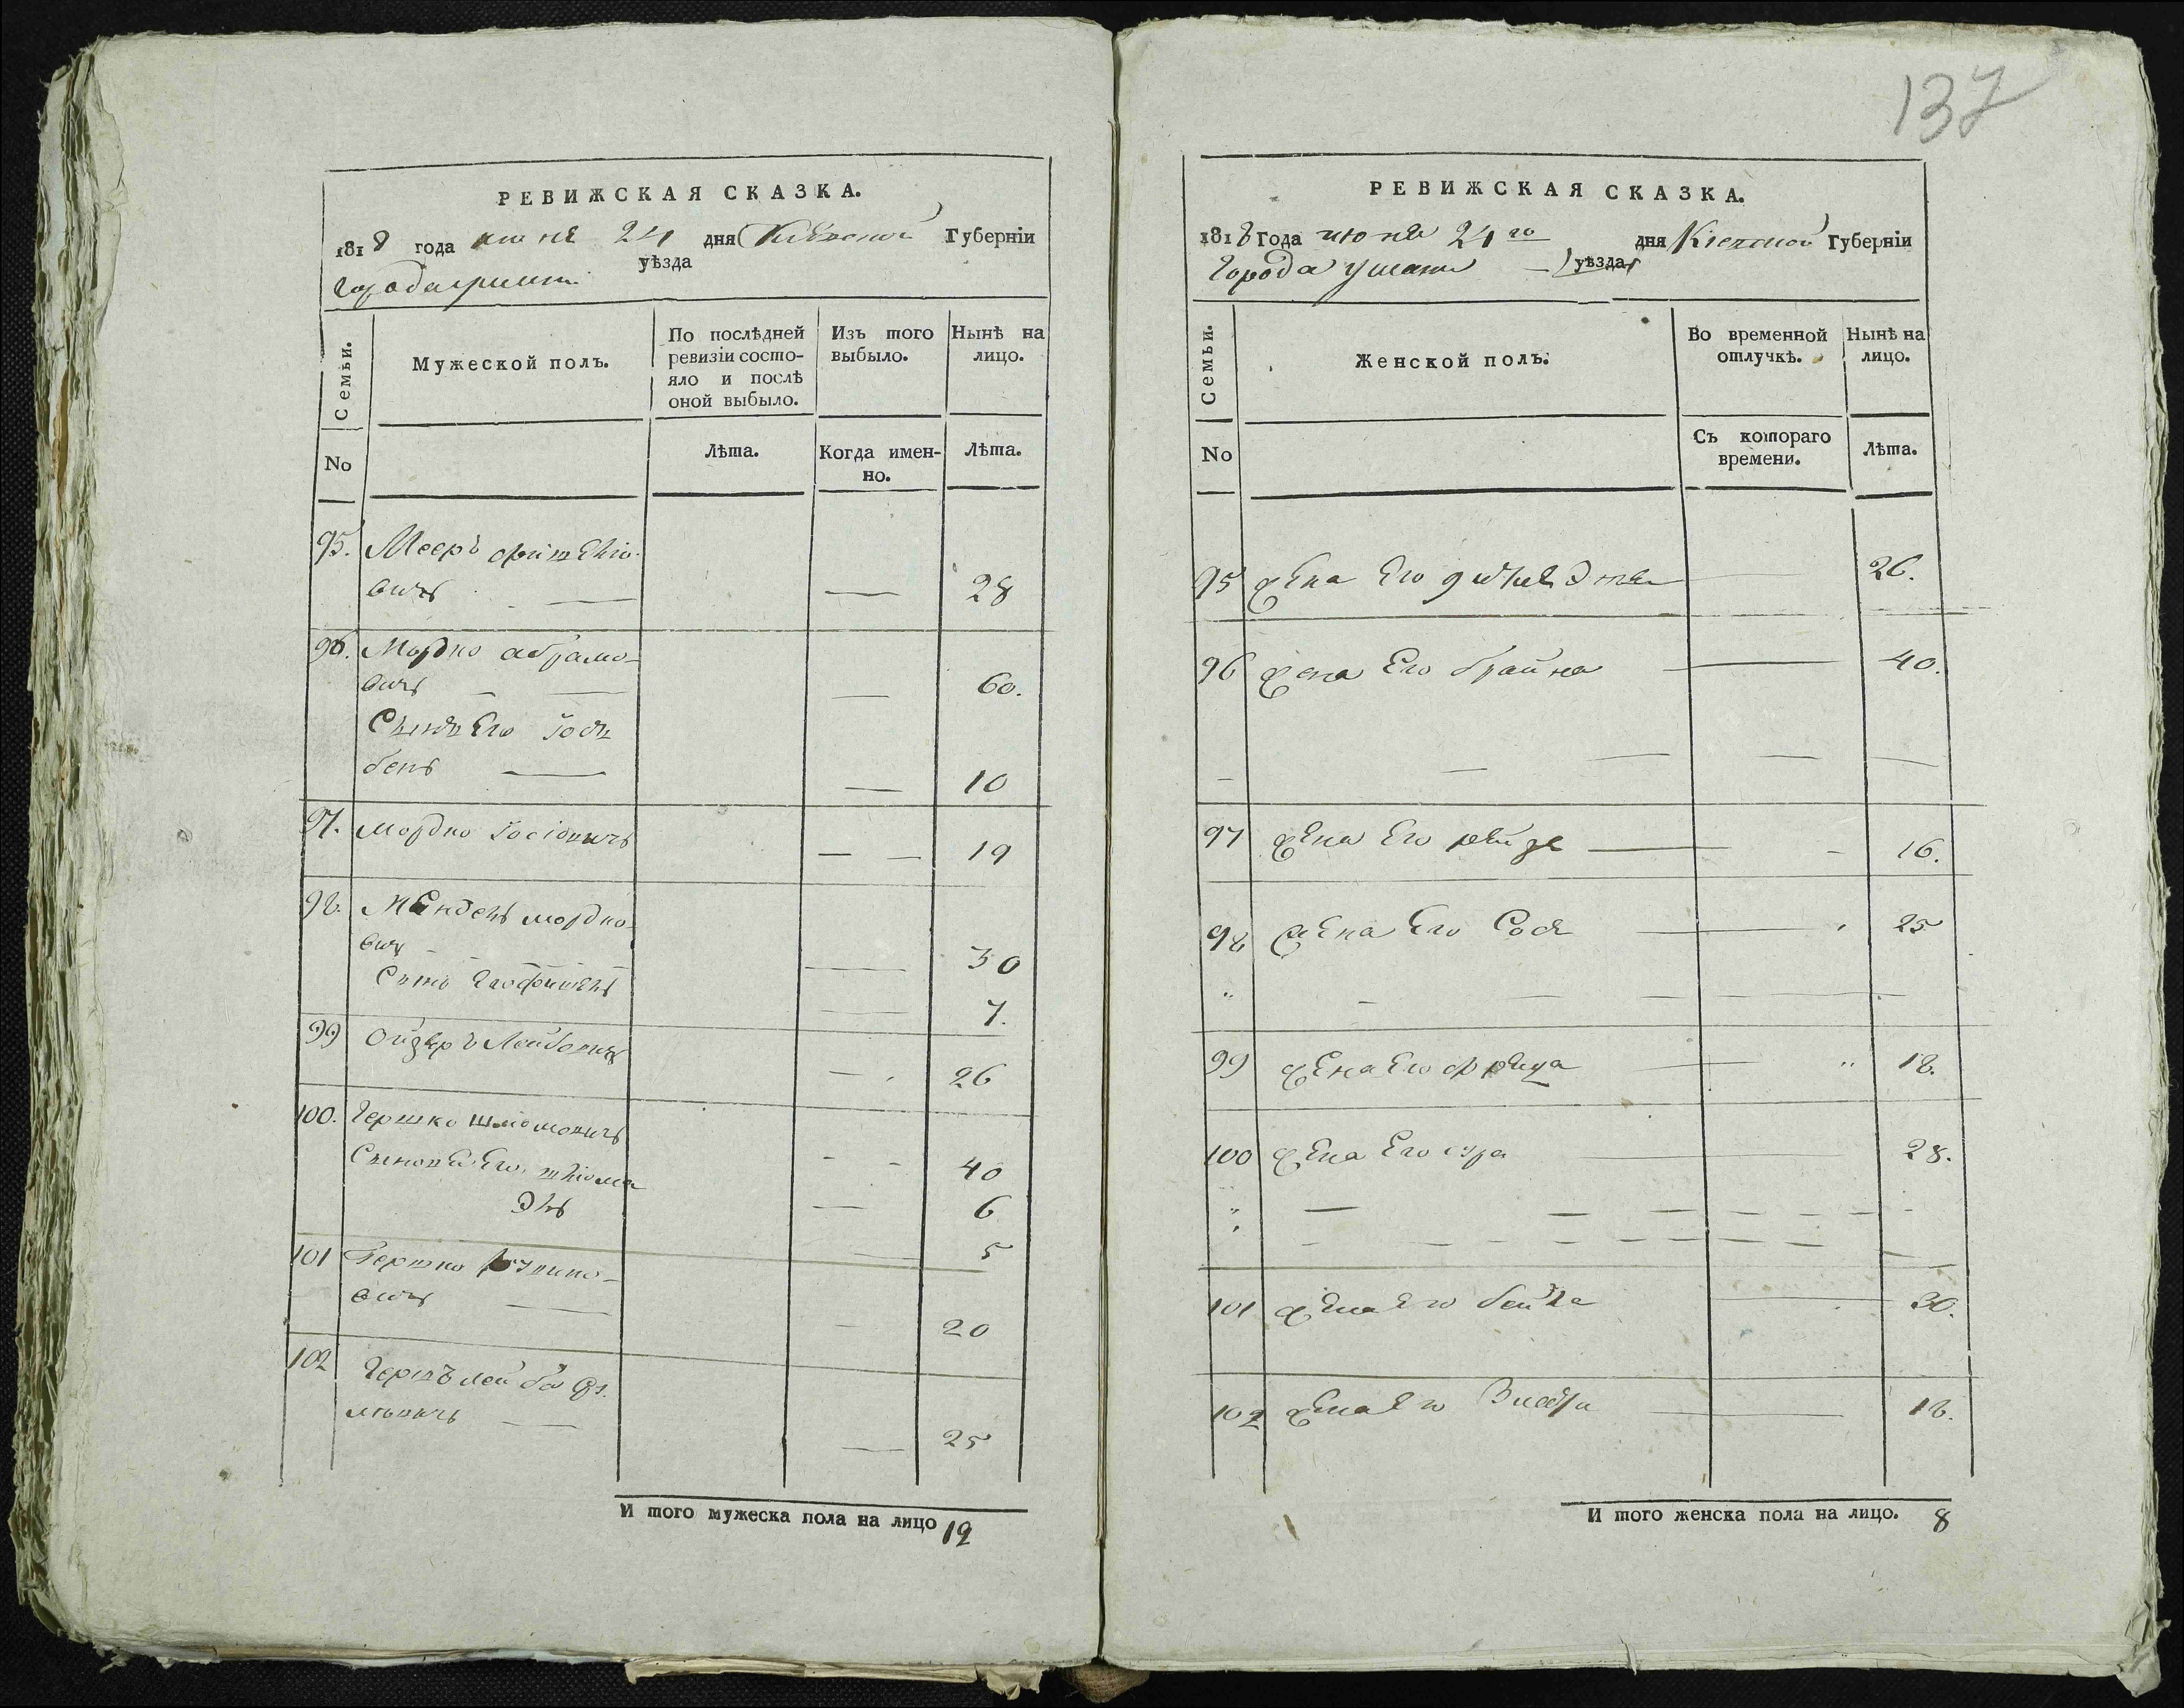 137
РЕВИЖСКАЯ СКАЗКА.
1818 года июня 24 дня Кіевской Губерніи
города умани уѣзда
Семьи.
Мужеской полъ.
По послѣдней ревизіи состо-
яло и послѣ
оной выбыло.
Изъ того выбыло.
Нынѣ на лицо.
No
Лѣта.
Когда имен-
но.
Лѣта.
95. Мееръ
вичъ — — 28
96. Мордко абрамо-
вичъ — — 60.
Сынъ Его Іось
бенъ — — 10
97. мордко Іосіовичъ — — 19
98. Мендель мордко-
вичъ — 30
Сынъ Его фишель — 7.
99 Ойзеръ Лейбовичъ — 26
100. Гершко шліомовичъ — 40
Сыновья Его шліома — 6
Эль — 5
101 Гершко
вичъ — — 20
102 Гершъ лейба
— — 25
И того мужеска пола на лицо 12
РЕВИЖСКАЯ СКАЗКА.
1818 Года июня 24го дня Кіевской Губерніи
Города умани — уѣзда
Семьи.
Женской полъ.
Во временной
отлучкѣ.
Нынѣ на
лицо.
No
Съ котораго
времени.
Лѣта.
95 жена Его — 26.
96 жена Его брайна — 40.
97 жена Его рейзя — 16.
98 жена Его Сося — 25
99 жена Его фрейда — 18.
100 жена Его сура — 28.
101 жена Его бейла — 30.
102 жена Его — 18.
И того женска пола на лицо. 8